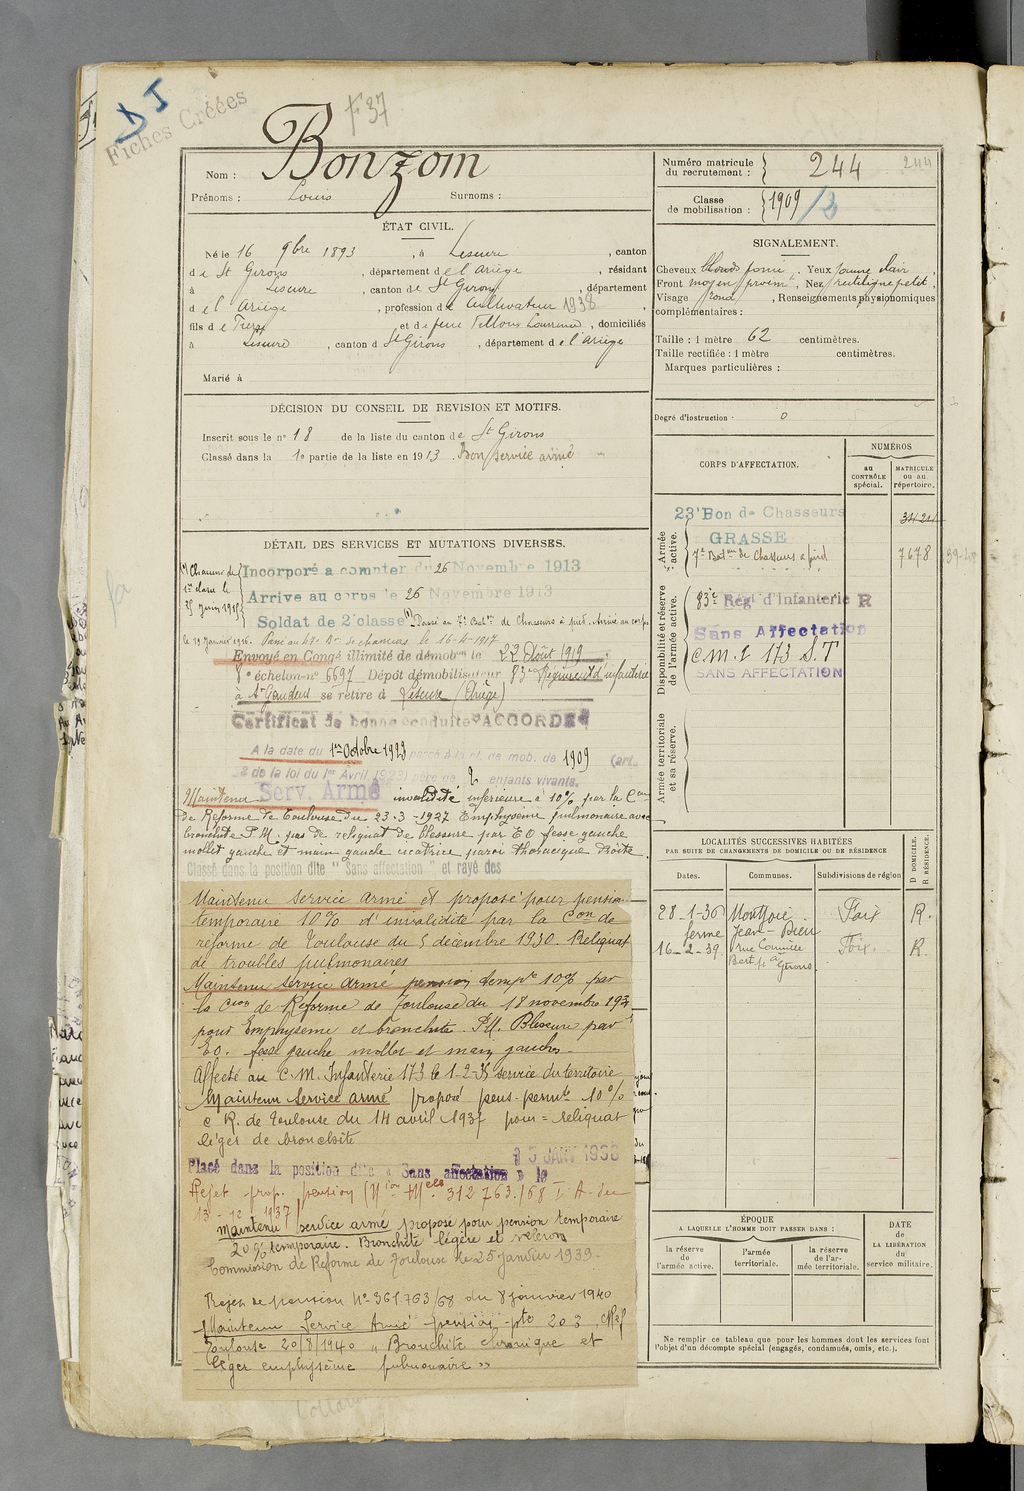 DJ
Fiches Créées
F37
Nom : Bonzom
Prénoms : Louis Surnoms :
Numéro matricule du recrutement : 244 244
Classe de mobilisation : 1909/3
ÉTAT CIVIL.
Né le 16 9bre 1893, à Lescure, canton
de St Girons, département de l'Ariège, résidant
à Lescure, canton de St Girons, département
de l'Ariège, profession de Cultivateur 1938
fils de et de feue, domiciliés
à Lescure, canton d St Girons, département de l'Ariège
Marié à
SIGNALEMENT.
Cheveux blonds, Yeux jaune clair,
Front moyen, Nez rectiligne petit,
Visage rond, Renseignements physionomiques
complémentaires :
Taille : 1 mètre 62 centimètres.
Taille rectifiée : 1 mètre centimètres.
Marques particulières :
Degré d'instruction : 0
DÉCISION DU CONSEIL DE REVISION ET MOTIFS.
Inscrit sous le n° 18 de la liste du canton de St Girons
Classé dans la 1e partie de la liste en 1913. Bon service armé
CORPS D'AFFECTATION.
NUMÉROS
au CONTRÔLE spécial.
MATRICULE ou au répertoire.
Armée active.
23e Bon de Chasseurs
GRASSE
7e Baton de Chasseurs à pied 7678
Disponibilité et réserve de l'armée active.
83e Rég. d'Infanterie R
Sans Affectation
C.M.I 173 S.T
SANS AFFECTATION
Armée territoriale et sa réserve.
DÉTAIL DES SERVICES ET MUTATIONS DIVERSES.
(1) Chasseur de 1re classe le 25 juin 1915
Incorporé à compter du 26 Novembre 1913
Arrivé au corps le 26 Novembre 1913
Soldat de 2e classe (1) Passé au 7e Baton de Chasseurs à pied. Arrivé au corps
le 19 Janvier 1916. Passé au 47e Bon de chasseurs le 16-4-1917
Envoyé en Congé illimité de démobon le 22 Août 1919
8e échelon n° 6697 Dépôt démobilisateur 83e Régiment d'infanterie
à St Gaudens se retire à Lescure (Ariège)
Certificat de bonne conduite "ACCORDÉ"
A la date du 1er Octobre 1923 passé à la cl. de mob. de 1909 (art.
58 de la loi du 1er Avril 1923) père de 2 enfants vivants.
Maintenu Serv. Armé invalidité inférieure à 10% par la Con
de Réforme de Toulouse du 23-3-1927 Emphysème pulmonaire avec
bronchite P.M. pas de reliquat de blessure par E O fesse gauche
mollet gauche et main gauche cicatrice paroi thoracique droite.
Classé dans la position dite "Sans affectation" et rayé des
Maintenu service armé et proposé pour pension
temporaire 10% d'invalidité par la Con de
réforme de Toulouse du 5 décembre 1930. Reliquat
de troubles pulmonaires
Maintenu service armé pension tempre 10% par
la Cion de Réforme de Toulouse du 18 novembre 193
pour Emphysème et bronchite P.M. Blessure par
E O. fesse gauche mollet et main gauches
Affecté au C.M. Infanterie 173 le 1-2-35 service du territoire
Maintenu Service armé proposé pens. permte 10%
C R. de Toulouse du 14 avril 1937 pour = reliquat
léger de bronchite
Placé dans la position dite « Sans affectation » le 15 JANV 1938
Rejet prop. pension (Mion Melle 312 763/68 I A du
13-12-1937)
Maintenu service armé proposé pour pension temporaire
20% temporaire. Bronchite légère et
Commission de Réforme de Toulouse le 25 janvier 1939.
Rejet de pension N° 361.763/68 du 8 janvier 1940
Maintenu Service Armé pension pte 20 3
Toulouse 20/8/1940 « Bronchite chronique et
léger emphysème pulmonaire »
LOCALITÉS SUCCESSIVES HABITÉES
PAR SUITE DE CHANGEMENTS DE DOMICILE OU DE RÉSIDENCE
Dates. Communes. Subdivisions de région D. DOMICILE. R. RÉSIDENCE.
28-1-36 Montjoie Foix R.
ferme Jean-Dieu
16-2-39 rue Camille Foix. R.
Girons
ÉPOQUE
A LAQUELLE L'HOMME DOIT PASSER DANS :
la réserve de l'armée active.
l'armée territoriale.
la réserve de l'armée territoriale.
DATE DE LA LIBÉRATION du service militaire.
Ne remplir ce tableau que pour les hommes dont les services font
l'objet d'un décompte spécial (engagés, condamnés, omis, etc.).